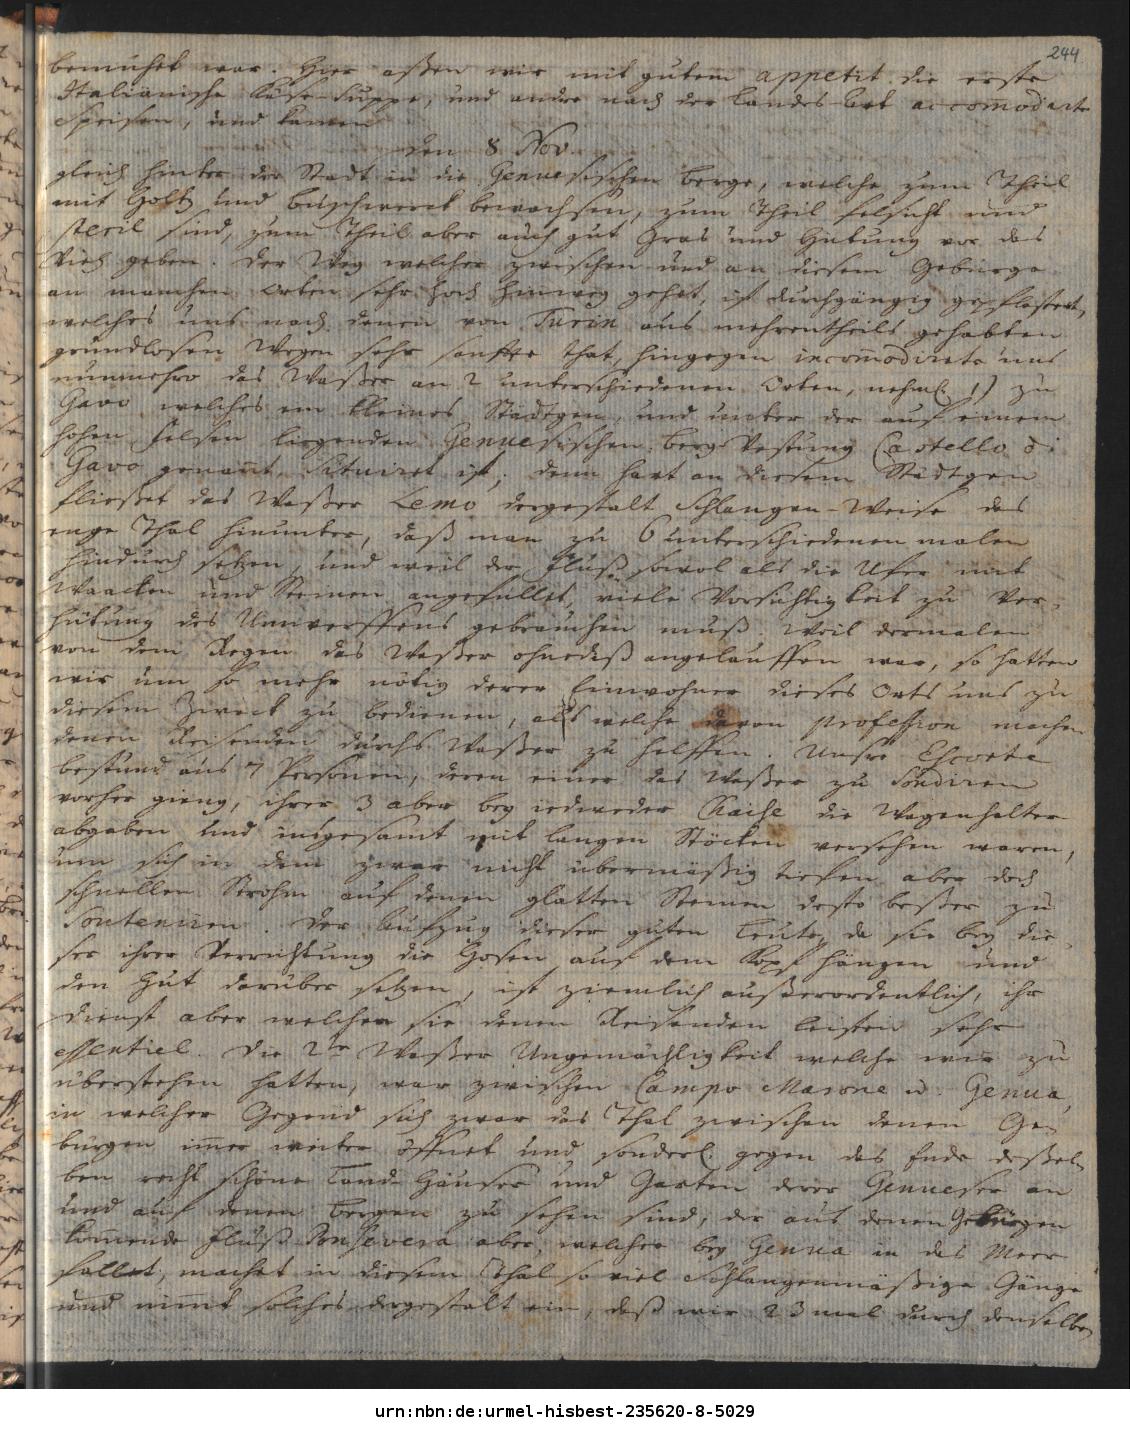 244
bemühet war. Hier aßen wir mit gutem appetit die erste
Italianische Käse-Suppe, und andre nach der Landes-Art accomodirte
Speisen, und kamen
den 8 Nov.
gleich hinter der Stadt in die Genuesischen Berge, welche zum Theil
mit Holtz und Buschwerck bewachsen, zum Theil felsicht und
steril sind, zum Theil aber auch gut Gras und Hütung vor das
Vieh geben. Der Weg welcher zwischen und an diesem Gebürge
an manchen Orten sehr hoch hinweg gehet, ist durchgängig gepflastert,
welches uns nach denen von Turin aus mehrentheils gehabten
grundlosen Wegen sehr sanffte that, hingegen incommodirete uns
nunmehro das Waßer an 2 unterschiedenen Orten, nehml. 1) zu
Gavo, welches ein kleines Städtgen, und unter der auf einem
hohen Felsen liegenden Genuesischen Berg-Vestung Castello di
Gavo genannt, situiret ist, denn hart an diesem Städtgen
fließet das Waßer Lemo dergestalt Schlangen-Weise das
enge Thal hinunter, daß man zu 6 unterschiedenen malen
hindurch setzen, und weil der Fluß sowol als die Ufer mit
Waacken und Steinen angefüllet, viele Vorsichtigkeit zu Ver-
hütung des Umwerffens gebrauchen muß. Weil dermalen
von dem Regen das Waßer ohnediß angelauffen war, so hatten
wir um so mehr nötig derer Einwohner dieses Orts uns zu
diesem Zweck zu bedienen, als welche davon profession machen
denen Reisenden durchs Waßer zu helffen. Unsre Escorte
bestund aus 7 Personen, deren einer das Waßer zu sondiren
vorher gieng, ihrer 3 aber bey iedweder Chaise die Wagenhalter
abgaben und insgesamt mit langen Stöcken versehen waren,
um sich in dem zwar nicht übermäßig tiefen aber doch
schnellen Strohm auf denen glatten Steinen desto beßer zu
souteniren. Der Aufzug dieser guten Leute, da sie bey die-
ser ihrer Verrichtung die Hosen auf dem Kopf hängen und
den Hut darüber setzen, ist ziemlich außerordentlich, ihr
Dienst aber welchen sie denen Reisenden leisten sehr
essentiel. Die 2te Waßer Ungemächligkeit welche wir zu
überstehen hatten, war zwischen Campo Marone u. Genua,
in welcher Gegend sich zwar das Thal zwischen denen Ge-
bürgen immer weiter öffnet und sonderl. gegen das Ende deßel-
ben recht schöne Land-Häuser und Garten derer Genueser an
und auf denen Bergen zu sehen sind, der aus denen Gebürgen
kommende Fluß Ponsevera aber, welcher bey Genua in das Meer
fället, machet in diesem Thal so viel Schlangenmäßige Gänge
und nimmt solches dergestalt ein, daß wir 23 mal durch denselben
urn:nbn:de:urmel-hisbest-235620-8-5029